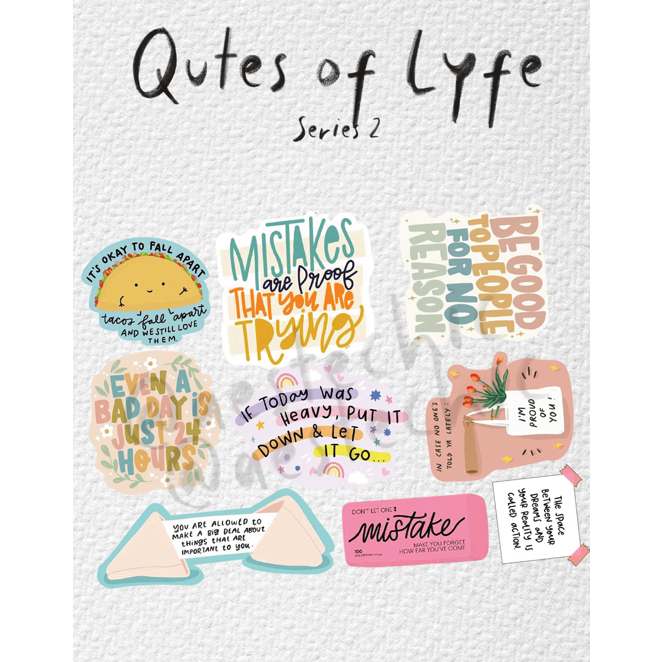 Qutes of Lyfe
Series 2
IT'S OKAY TO FALL APART
tacos fall apart
AND WE STILL LOVE
THEM.
MISTAKES
are Proof
THAT you ARE
TRyING
BE GOOD
TO PEOPLE
FOR NO
REASON
EVEN A
BAD DAY IS
JUST 24
HOURS
IF TODAY WAS
HEAVY, PUT IT
DOWN & LET
IT GO...
IN CASE NO ONE'S
TOLD YA LATELY:
I'M
PROUD
OF
YOU!
YOU ARE ALLOWED TO
MAKE A BIG DEAL ABOUT
THINGS THAT ARE
IMPORTANT TO YOU...
DON'T LET ONE
mistake
100
MAKE YOU FORGET
HOW FAR YOU'VE COME
THE SPACE
BETWEEN YOUR
DREAMS AND
YOUR REALITY IS
CALLED ACTION